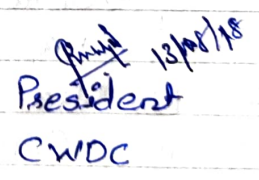 13/08/18
President
CWDC